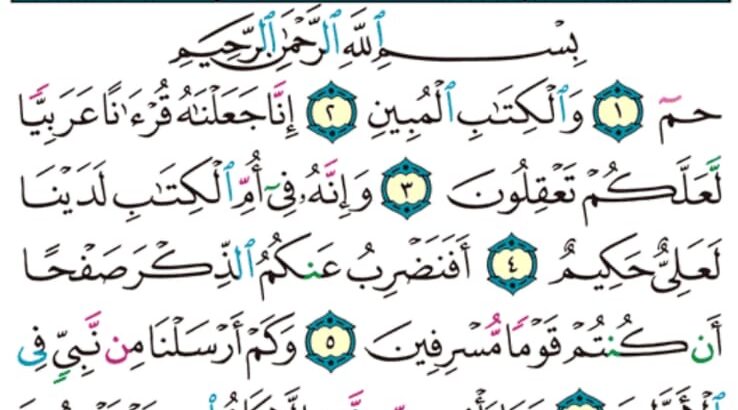 بِسْمِ ٱللَّهِ ٱلرَّحْمَٰنِ ٱلرَّحِيمِ
حمٓ ١ وَٱلْكِتَٰبِ ٱلْمُبِينِ ٢ إِنَّا جَعَلْنَٰهُ قُرْءَٰنًا عَرَبِيًّا
لَّعَلَّكُمْ تَعْقِلُونَ ٣ وَإِنَّهُۥ فِىٓ أُمِّ ٱلْكِتَٰبِ لَدَيْنَا
لَعَلِىٌّ حَكِيمٌ ٤ أَفَنَضْرِبُ عَنكُمُ ٱلذِّكْرَ صَفْحًا
أَن كُنتُمْ قَوْمًا مُّسْرِفِينَ ٥ وَكَمْ أَرْسَلْنَا مِن نَّبِىٍّ فِى